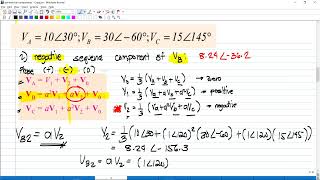 V_A = 10∠30°; V_B = 30∠-60°; V_C = 15∠145°
2) negative sequence component of V_B: 8.29∠-36.2
Phase (+) (-) (0)
V_A = V_1 + V_2 + V_0
V_0 = 1/3 (V_A + V_B + V_C) → zero
V_1 = 1/3 (V_A + aV_B + a²V_C) → positive
V_2 = 1/3 (V_A + a²V_B + aV_C) → negative
V_B2 = aV_2
V_2 = 1/3 (10∠30 + (1∠120)² (30∠-60) + (1∠120)(15∠145))
= 8.29∠-156.3
V_B2 = aV_2 = (1∠120)